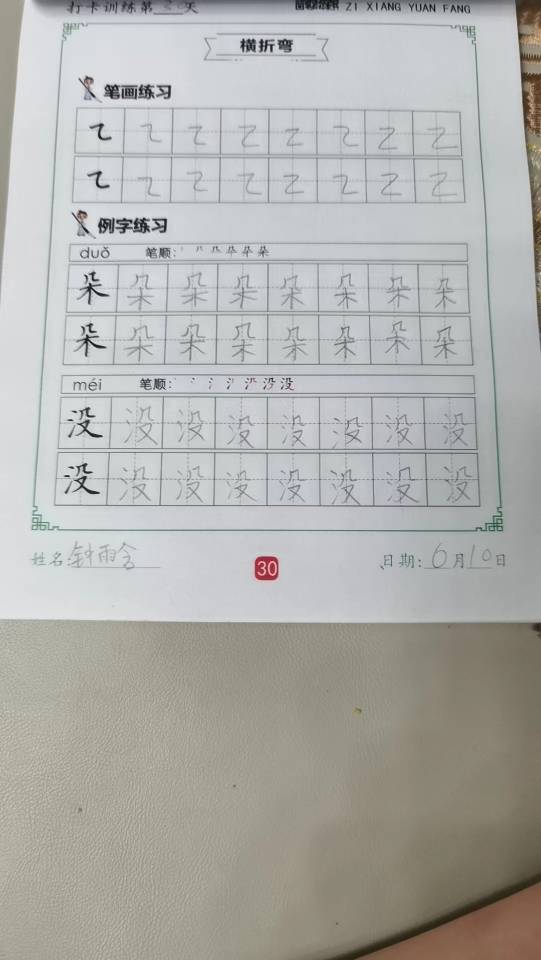 打卡训练第30天
ZI XIANG YUAN FANG
横折弯
笔画练习
例字练习
duǒ 笔顺:
朵 朵 朵 朵 朵 朵 朵 朵
朵 朵 朵 朵 朵 朵 朵 朵
méi 笔顺:
没 没 没 没 没 没 没 没
没 没 没 没 没 没 没 没
姓名:钟雨含 30 日期:6月10日